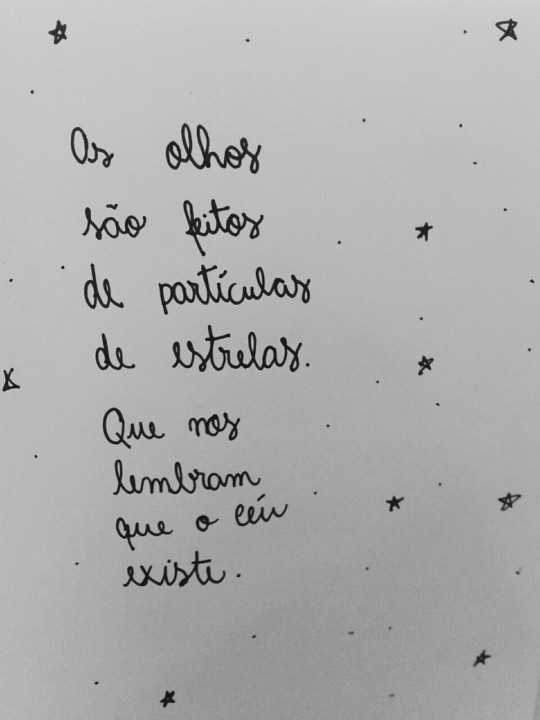 Os olhos
são feitos
de partículas
de estrelas.
Que nos
lembram
que o céu
existe.